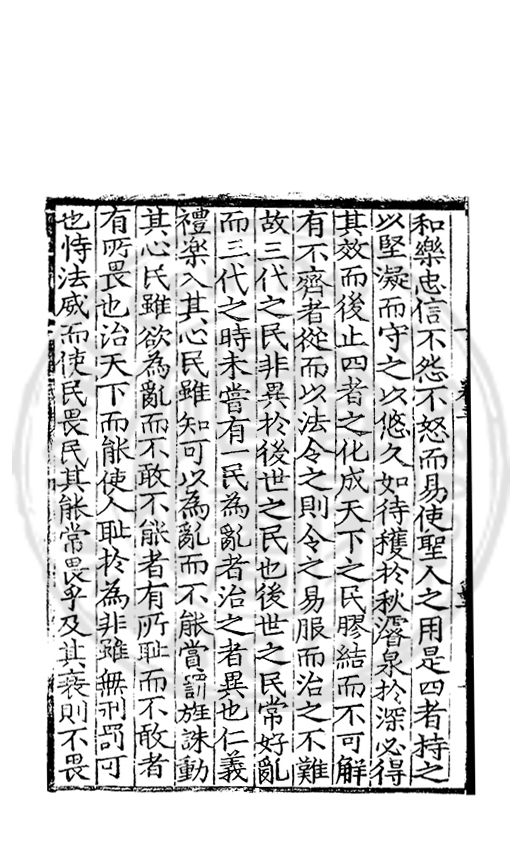 和樂忠信不怨不怒而易使聖人之用是四者持之
以堅凝而守之以悠久如待穫於秋濬泉於深必得
其效而後止四者之化成天下之民膠結而不可解
有不齊者從而以法令之則令之易服而治之不難
故三代之民非異於後世之民也後世之民常好亂
而三代之時未嘗有一民為亂者治之者異也仁義
禮樂入其心民雖知可以為亂而不能賞罰旌誅動
其心民雖欲為亂而不敢不能者有所恥而不敢者
有所畏也治天下而能使人恥於為非雖無刑罰可
也恃法威而使民畏民其能常畏乎及其衰則不畏